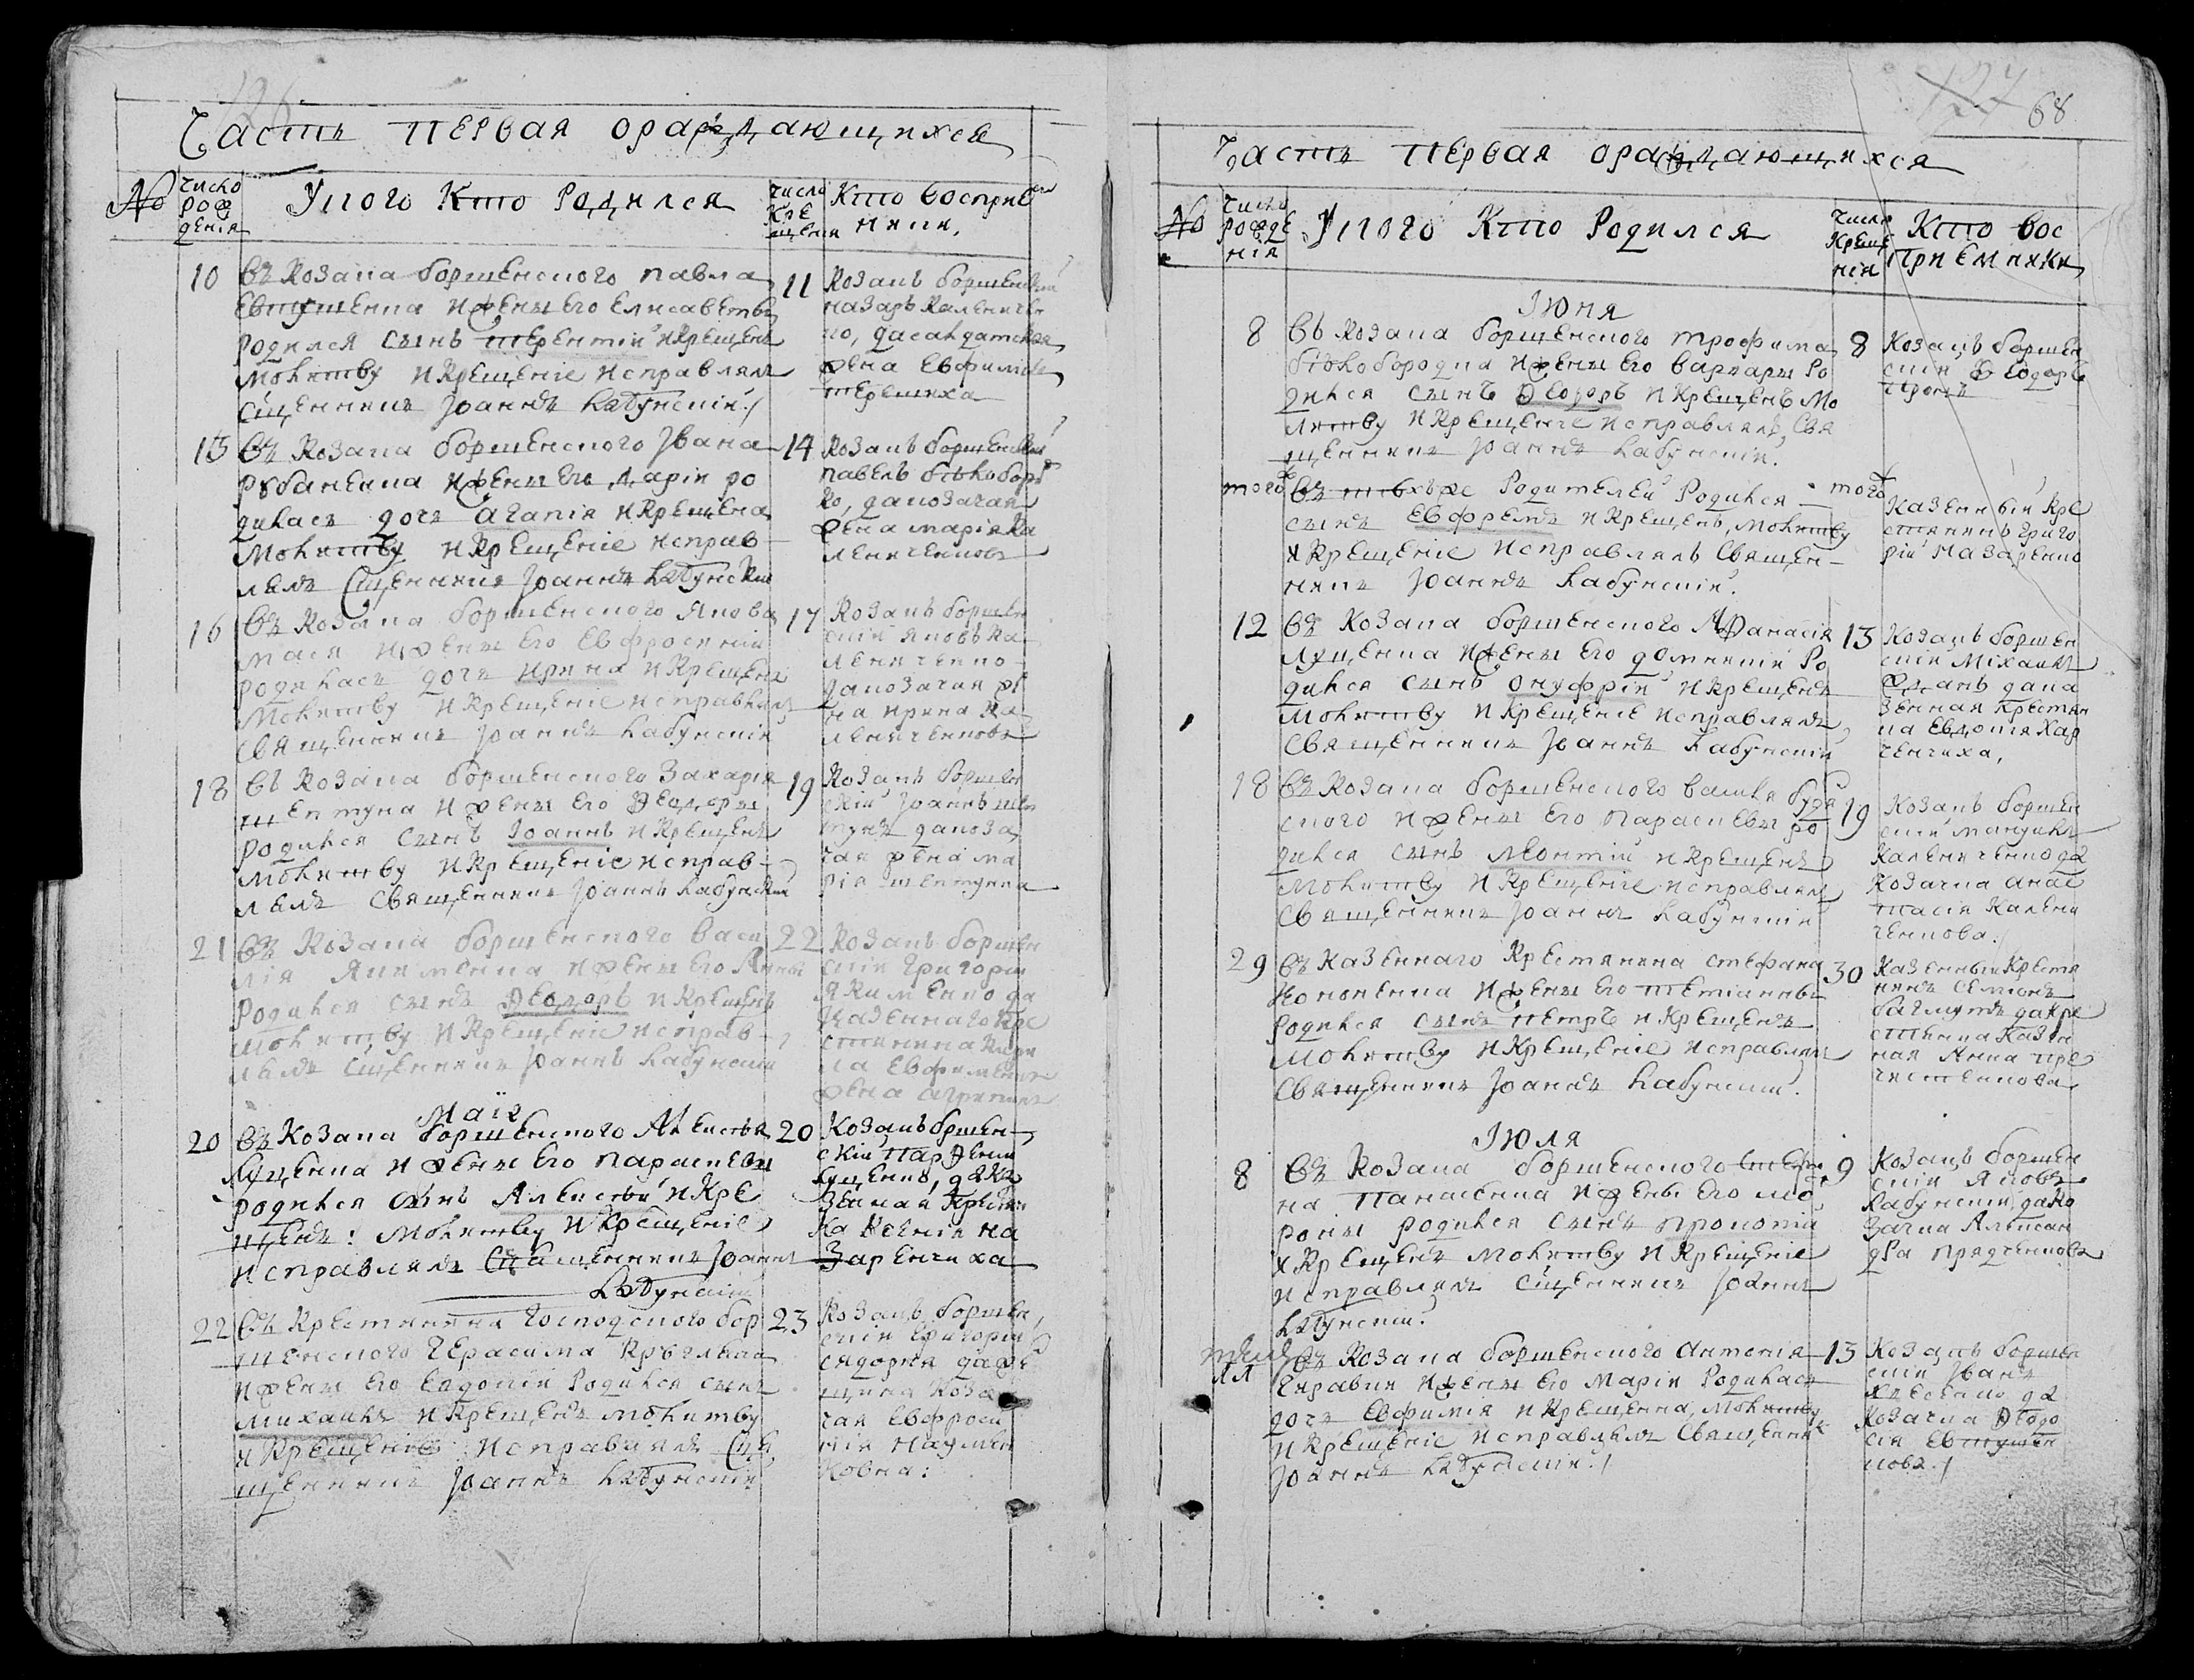 126
Часть первая ораждающихся
№
число рождения
У кого кто родился
число крещения
кто восприемники
10
въ козака борщенского павла
Евтушенка и жены его Елисаветы
родился сынъ терентий и крещенъ
молитву и крещение исправлялъ
сщенникъ Иоаннъ Лабунский
11
козакъ борщенский
назаръ Каленичен
ко, да солдатская
жена Евфимия
терешиха
13
въ козака борщенского Ивана
Рубаненка и жены его дарии ро
дилась дочь агапия и крещена
молитву и крещение исправ
лялъ сщенникъ Иоаннъ Лабунский
14
козакъ борщенский
павелъ белоборо
ко, да козачая
жена мария Ка
леничен­кова
16
въ козака борщенского Якова
маси и жены его Евфросинии
родилась дочь ирина и крещена
молитву и крещение исправлялъ
священникъ Иоаннъ Лабунский
17
козакъ борщен
ский яковъ Ка
леничен­ко
да козачая же
на ирина Ка
леничен­кова
18
въ козака борщенского Захария
шептуна и жены его Ѳеодоры
родился сынъ Иоаннъ и крещенъ
молитву и крещение исправ
лялъ священникъ Иоаннъ Лабунский
19
козакъ борщен
ский Иоаннъ шеп
тунъ да коза
чая жена ма
рия шептунка
21
въ козака борщенского Васи
лия Якименка и жены его Анны
родился сынъ Ѳеодоръ и крещенъ
молитву и крещение исправ
лялъ сщенникъ Иоаннъ Лабунский
22
козакъ борщен
ский григорий
Якименко да
казеннаго кре
стянина
жена
Маия
20
въ козака борщенского Алексея
Куценка и жены его параскевы
родился сынъ Алексей и кре
щенъ: молитву и крещение
исправлялъ священникъ Иоаннъ
Лабунский
20
козакъ борщен
ский парѳений
куценко, да ка
зенная крестян
ка Ксения на
заренчиха
22
въ крестянина господского бор
щенского герасима
и жены его Евдокии родился сынъ
михаилъ и крещенъ молитву
и крещение исправлялъ свя
щенникъ Иоаннъ Лабунский
23
козакъ борщен
ский григорий
сидорня да
щина коза
чая Евфроси
ния наумен
кова:
127
68
Часть первая ораждающихся
№
число рожде
ния
У кого кто родился
число
креще
ния
кто вос
приемники
Июня
8
въ козака борщенского трофима
белобородка и жены его варвары ро
дился сынъ Ѳеодоръ и крещенъ мо
литву и крещение исправлялъ, свя
щенникъ Иоаннъ Лабунский.
8
козакъ борщен
ский Ѳеодоръ
того ж
въ техъ же родителей родился
сынъ Евфремъ и крещенъ, молитву
и крещение исправлялъ священ
никъ Иоаннъ Лабунский.
того ж
казенный кре
стянинъ григо
рий назаренко
12
въ козака борщенского Афанасия
луценка и жены его домникии ро
дился сынъ онуфрий и крещенъ
молитву и крещение исправлялъ
священникъ Иоаннъ Лабунский
13
козакъ борщен
ский михаилъ
жданъ да ка
зенная крестян
ка Евдокия хар
ченчиха,
18
въ козака борщенского василя
ского и жены его параскевы ро
дился сынъ леонтий и крещенъ
молитву и крещение исправлялъ
священникъ Иоаннъ Лабунский
19
козакъ борщен
ский мануилъ
каленичен­ко да
козачка анас
тасия калени
ченкова./
29
въ казеннаго крестянина стефана
кононенка и жены его тетианны
родился сынъ петръ и крещенъ
молитву и крещение исправлялъ
священникъ Иоаннъ Лабунский.
30
казенный крестя
нинъ семионъ
бахмутъ да кре
стянка казен
ная Анна
Июля
8
въ козака борщенского стефа
на панасенка и жены его мо
роны родился сынъ прокопий
и крещенъ молитву и крещение
исправлялъ сщенникъ Иоаннъ
Лабунский.
9
козакъ борщен
ский яковъ
Лабунский, да ко
зачка Алексан
дра придченкова
въ козака борщенского антония
и жены его марии родилась
дочь Евфимия и крещенна, молитву
и крещение исправлялъ священник
Иоаннъ Лабунский./
13
козакъ борщен
ский Иванъ
да
козачка Ѳеодо
сия Евтушен
кова./